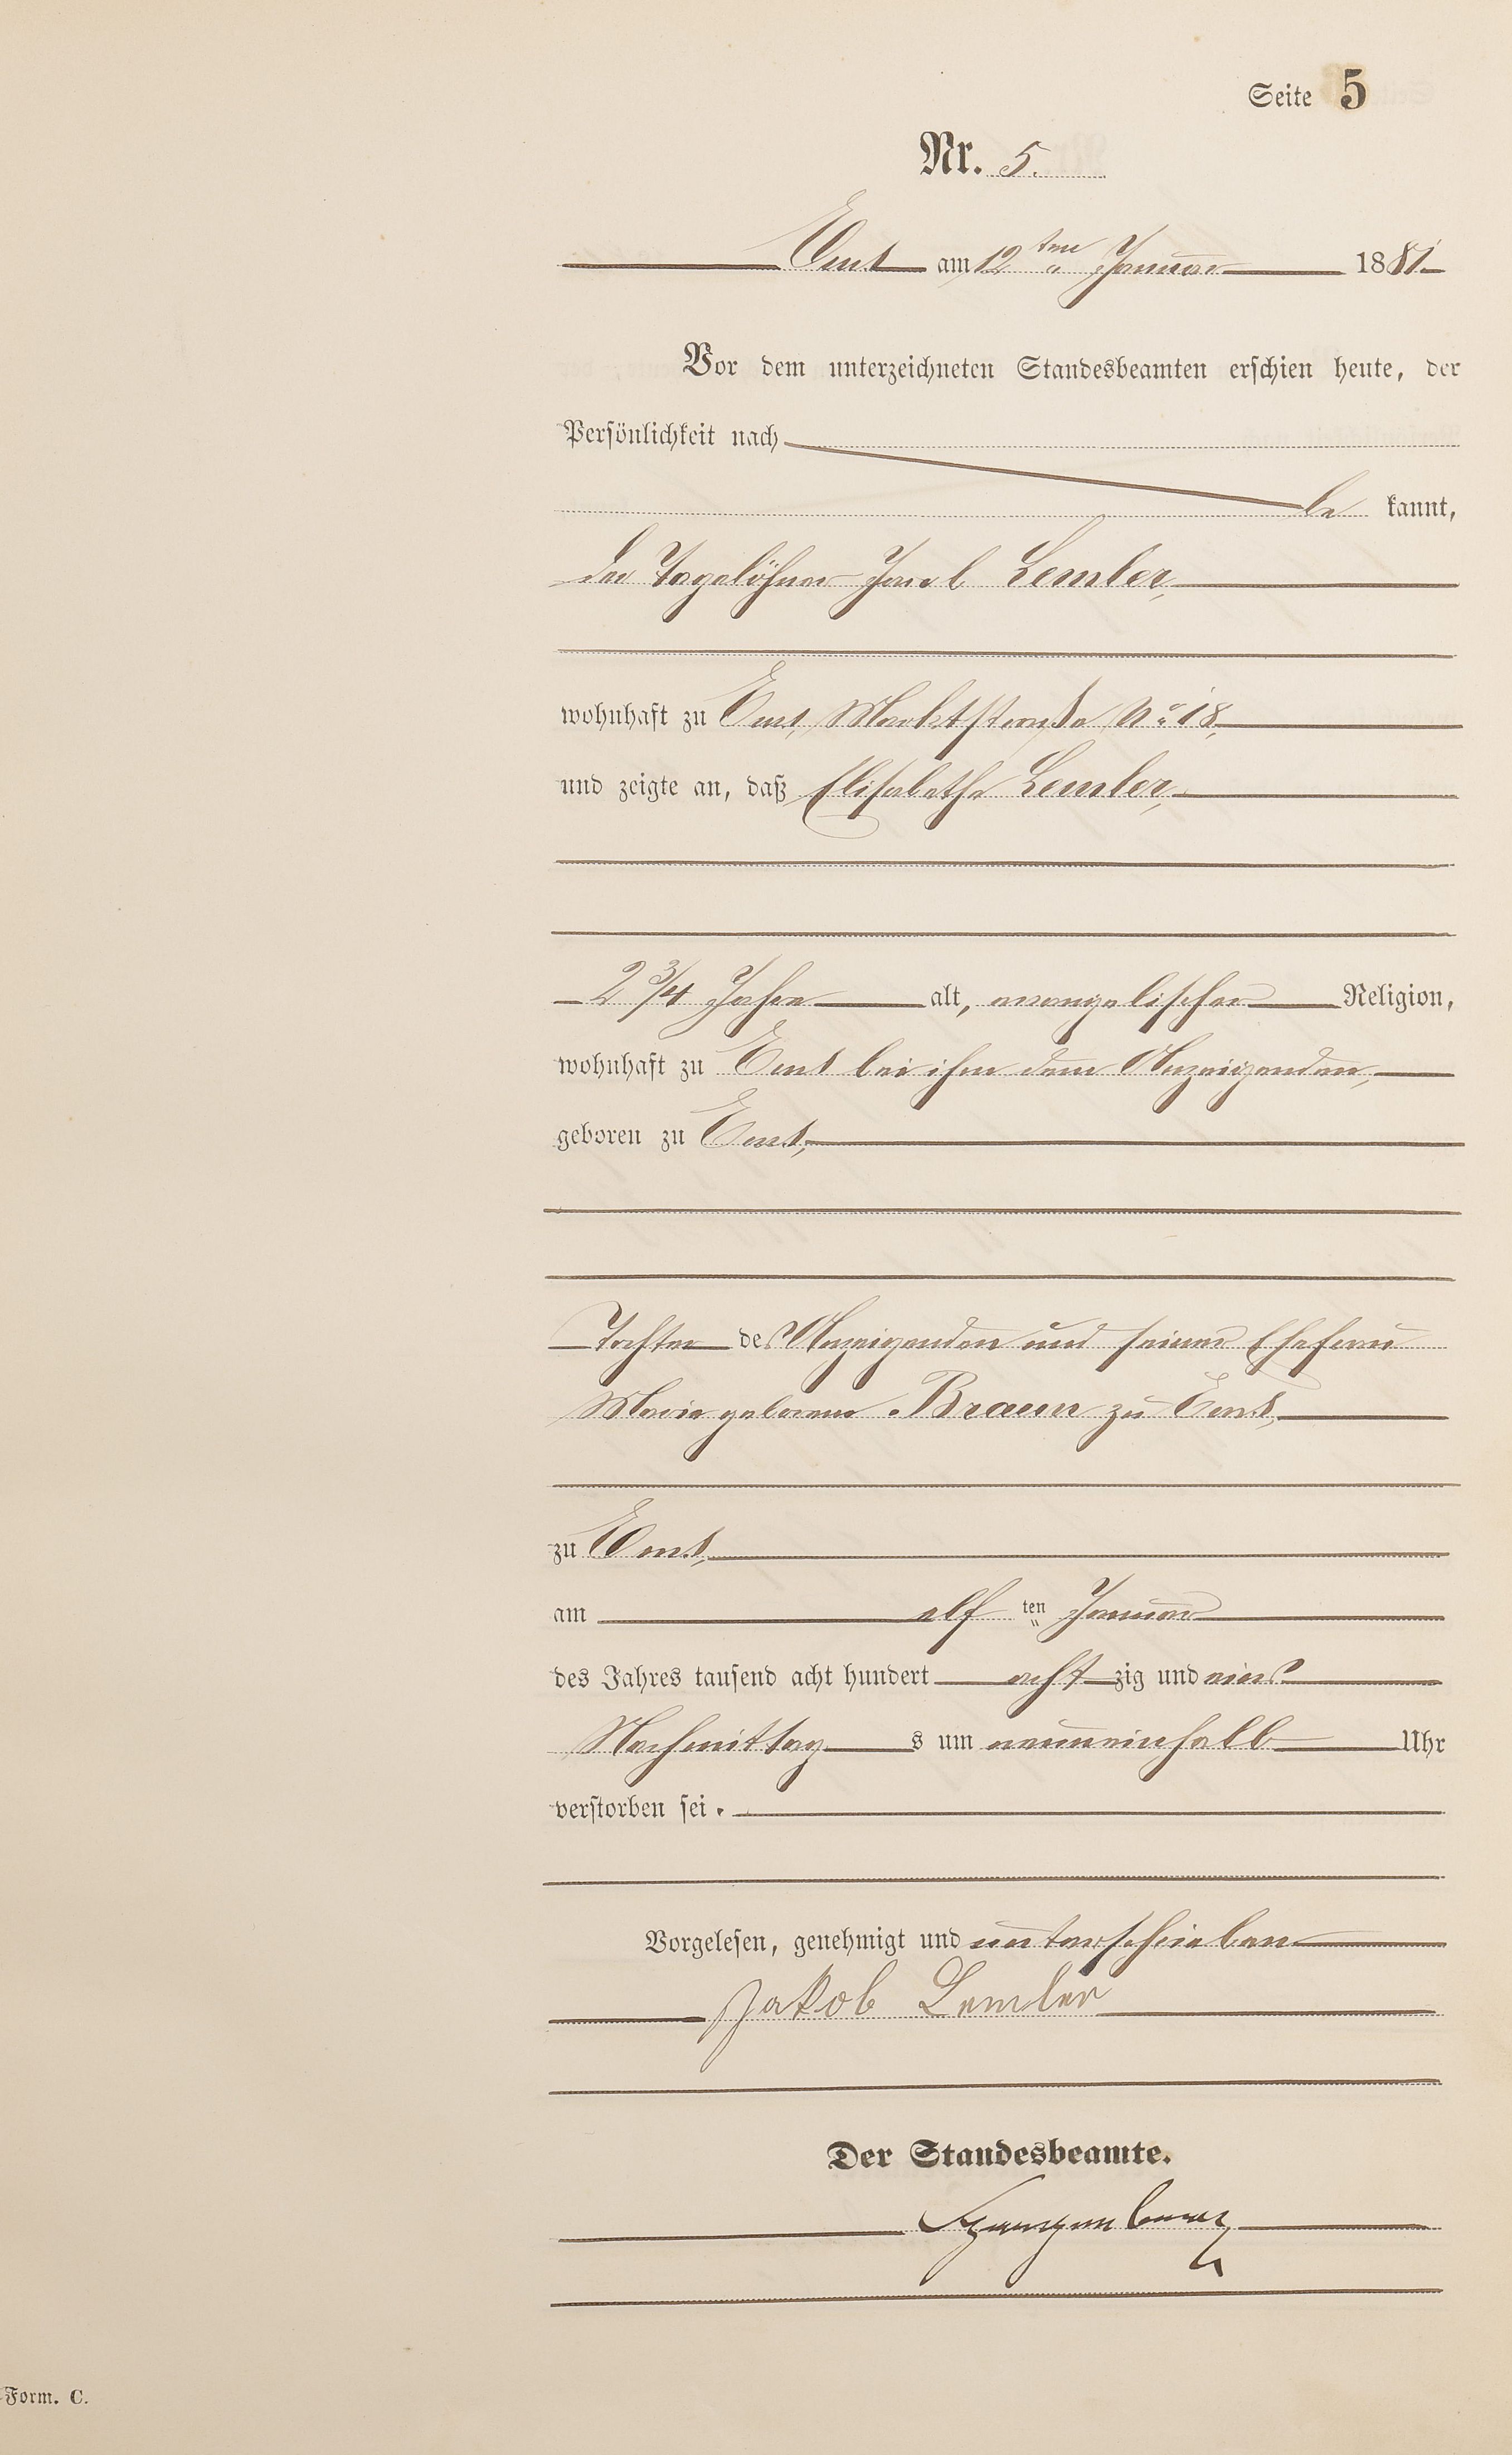 Seite 5
Nr. 5.
Ems am 12ten Januar 1881
Vor dem unterzeichneten Standesbeamten erschien heute, der
Persönlichkeit nach
be kannt,
der Tagelöhner Jacob Lemler,
wohnhaft zu Ems, Marktstraße No 18,
und zeigte an, daß Elisabetha Lemler,
2 3/4 Jahre alt, evangelischer Religion,
wohnhaft zu Ems bei ihm dem Anzeigenden,
geboren zu Ems,
Tochter des Anzeigenden und seiner Ehefrau
Maria geborene Braun zu Ems,
zu Ems,
am elf ten Januar
des Jahres tausend acht hundert acht zig und eins
Nachmittag s um neuneinhalb Uhr
verstorben sei.
Vorgelesen, genehmigt und unterschrieben
Jakob Lemler
Der Standesbeamte.
Form. C.